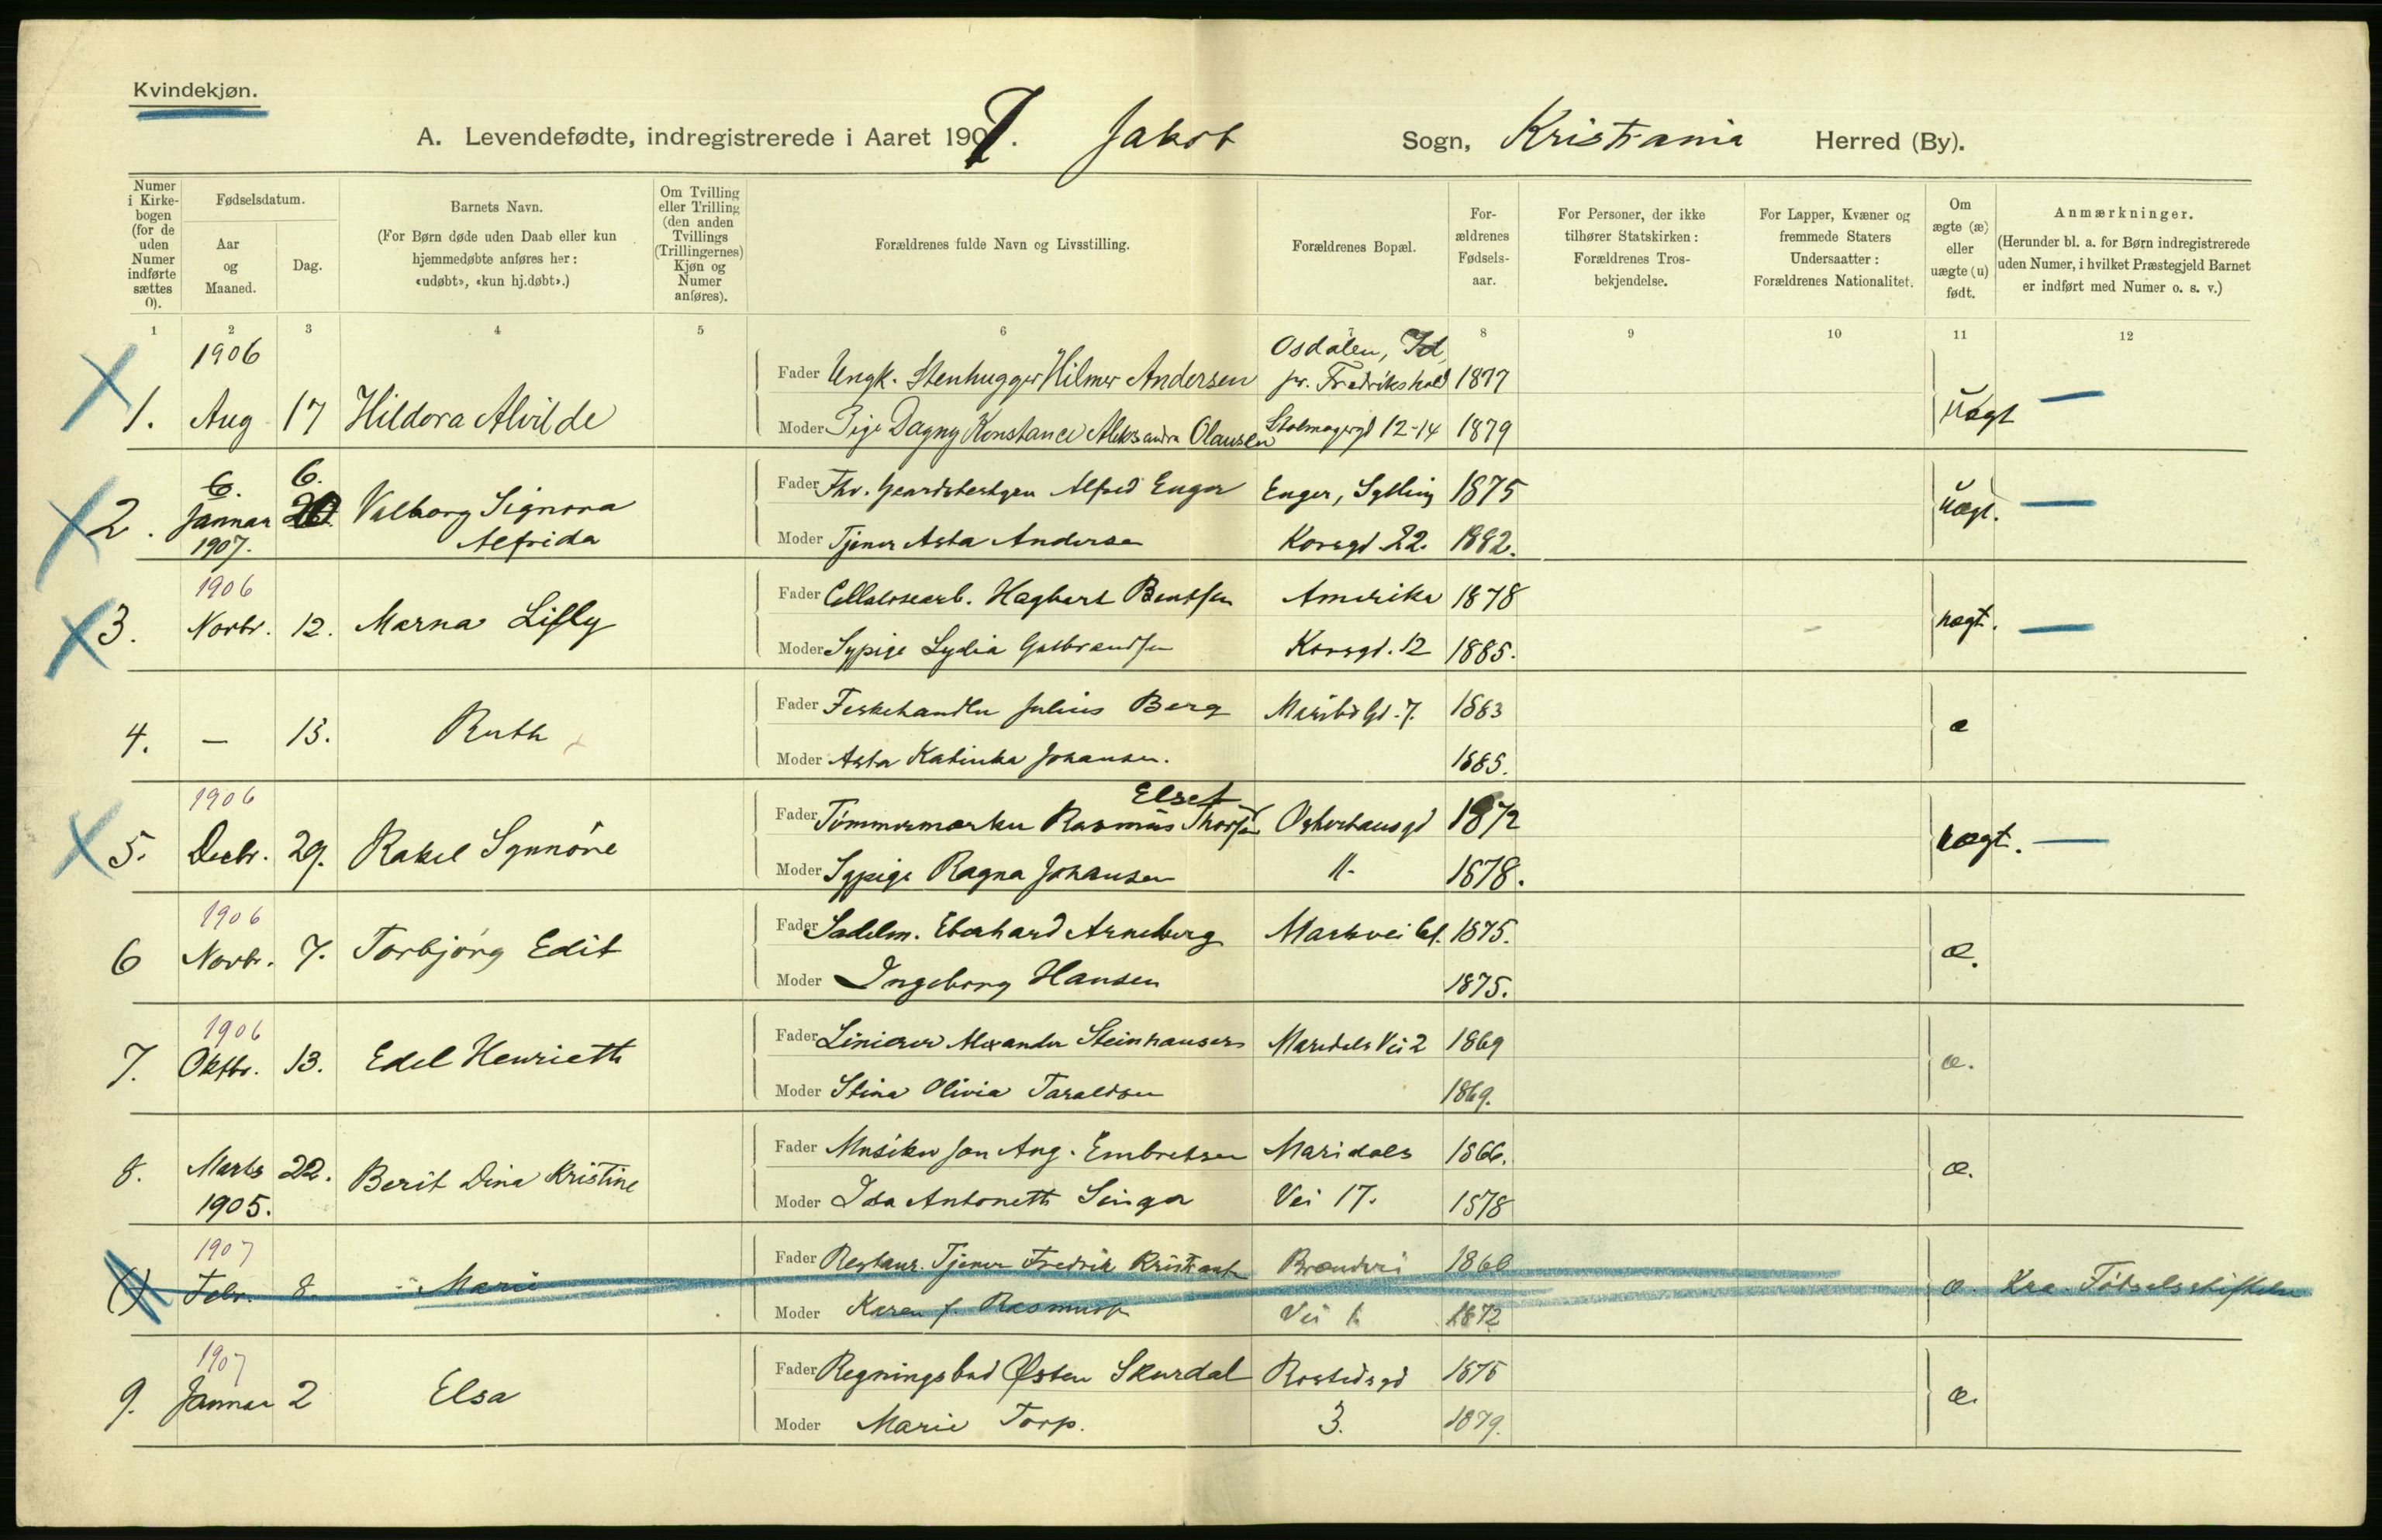 Kvindekjøn.
A. Levendefødte, indregistrerede i Aaret 1907. Jakob Sogn, Kristiania Herred (By).
Numer i Kirke-bogen (for de uden Numer indførte sættes 0).
Fødselsdatum.
Aar og Maaned.
Dag.
Barnets Navn.
(For Børn døde uden Daab eller kun hjemmedøbte anføres her: «udøbt», «kun hj.døbt».)
Om Tvilling eller Trilling (den anden Tvillings (Trillingernes) Kjøn og Numer anføres).
Forældrenes fulde Navn og Livsstilling.
Forældrenes Bopæl.
For-ældrenes Fødsels-aar.
For Personer, der ikke tilhører Statskirken: Forældrenes Tros-bekjendelse.
For Lapper, Kvæner og fremmede Staters Undersaatter: Forældrenes Nationalitet.
Om ægte (æ) eller uægte (u) født.
Anmærkninger.
(Herunder bl. a. for Børn indregistrerede uden Numer, i hvilket Præstegjeld Barnet er indført med Numer o. s. v.)
1 2 3 4 5 6 7 8 9 10 11 12
1906
Osdalen, Id,
Fader Ungk. Stenhugger Hilmer Andersen pr. Fredrikshald 1877
1. Aug 17 Hildora Alvilde uægt —
Moder Pige Dagny Konstance Aleksandra Olausen 12-14 1879
6. 6.
Fader Alfred Enger Enger, Sylling 1875
2. Januar 20. Valborg Signora uægt. —
1907. Alfrida
Moder Tjener Asta Andersen Korsgd 22. 1882.
1906
Fader Cellulosearb. Hagbart Bentsen Amerika 1878
3. Novbr. 12. Marna Lilly uægt. —
Moder Sypige Lydia Gulbrandsen Korsgd. 12 1885.
Fader Fiskehandler Julius Berg Maribogd. 7. 1883
4. — 13. Ruth æ
Moder Asta Katinka Johansen. 1885.
1906
Elset
Fader Tømmermærker Rasmus Thorsen Osterhausgd 1872
5. Decbr. 29. Rakel Synnöve uægt. —
Moder Sypige Ragna Johansen 11. 1878.
1906
Fader Sadelm. Eberhard Arneberg Markvei 61. 1875.
6 Novbr. 7. Torbjörg Edit æ.
Moder Ingeborg Hansen 1875.
1906
Fader Linierer Alexander Steinhauser Maridals Vei 2 1869
7. Oktbr. 13. Edel Henriette æ.
Moder Stina Olivia Taraldsen 1869.
Fader Musiker Jon Aug. Embretsen Maridals 1866.
8. Marts 22. Berit Dina Kristine æ.
1905.
Moder Ida Antonette Singer Vei 17. 1878
1907
Fader Restaur. Tjener Fredrik 1860
() Febr. 8. Marie æ. Kra. Fødselsstiftelse
Moder Karen f. Rasmussen Vei 1. 1872
1907
Fader Regningsbud Østen Skurdal Rostedsgd 1875
9. Januar 2 Elsa æ.
Moder Marie Torp. 3. 1879.